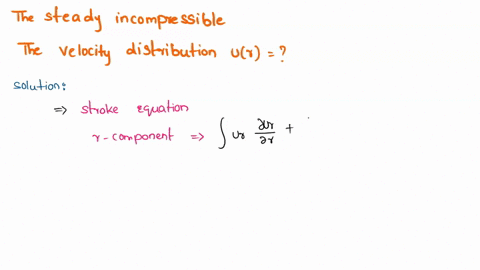 The steady incompressible
The velocity distribution u(r) = ?
solution:
⇒ stroke equation
r-component ⇒ ∫ ur ∂ur/∂r +